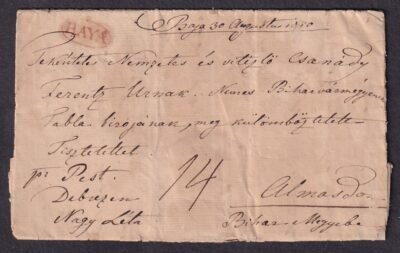 BAYA
Baja 30 Augustus 1830
Tekéntetes Nemzetes és vitézlö Csanády
Ferentz Urnak. Nemes Bihar vármegyének
Tabla birájának, meg külömböztetett
Tisztelettel
pr Pest.
Debrezen
Nagy Léta
14
Almosd
Bihar Megyebe